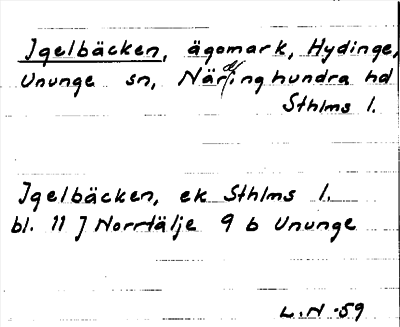 Igelbäcken, ägomark, Hydinge,
Ununge sn, Närdinghundra hd
Sthlms l.
Igelbäcken, ek Sthlms l.
bl. 11 J Norrtälje 9 b Ununge
L.N -59